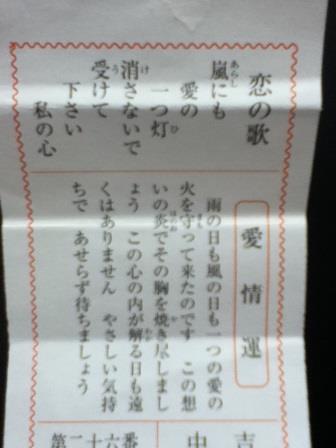 恋の歌
嵐にも
愛の
一つ灯
消さないで
受けて
下さい
私の心
愛情運
雨の日も風の日も一つの愛の
火を守って来たのです この想
いの炎でその胸を焼き尽しまし
ょう この心の内が解る日も遠
くはありません やさしい気持
ちで あせらず待ちましょう
吉
中
第二十六番